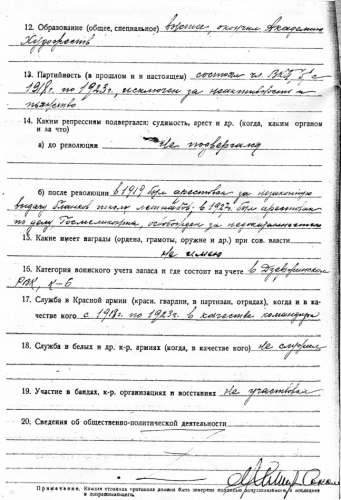 12. Образование (общее, специальное) высшее, окончил Академию
Художеств
13. Партийность (в прошлом и в настоящем) состоял чл. ВКП/б/ с
1918г. по 1923г., исключен за неактивность и
пьянство
14. Каким репрессиям подвергался: судимость, арест и др. (когда, каким органом
и за что)
а) до революции не подвергался
б) после революции в 1919 был арестован за незаконную
выдачу бланков; в 1927г. был арестован
по делу освобожден за недоказанностью
15. Какие имеет награды (ордена, грамоты, оружие и др.) при сов. власти
не имею
16. Категория воинского учета запаса и где состоит на учете в Дзержинском
РВК, к-6
17. Служба в Красной армии (красн. гвардии, в партизан, отрядах), когда и в ка-
честве кого с 1918г. по 1923г. в качестве командира
18. Служба в белых и др. к-р. армиях (когда, в качестве кого) не служил
19. Участие в бандах, к-р. организациях и восстаниях не участвовал
20. Сведения об общественно-политической деятельности
Примечание. Каждая страница протокола должна быть заверена подписью допрашиваемого, а последняя
и допрашивающего.